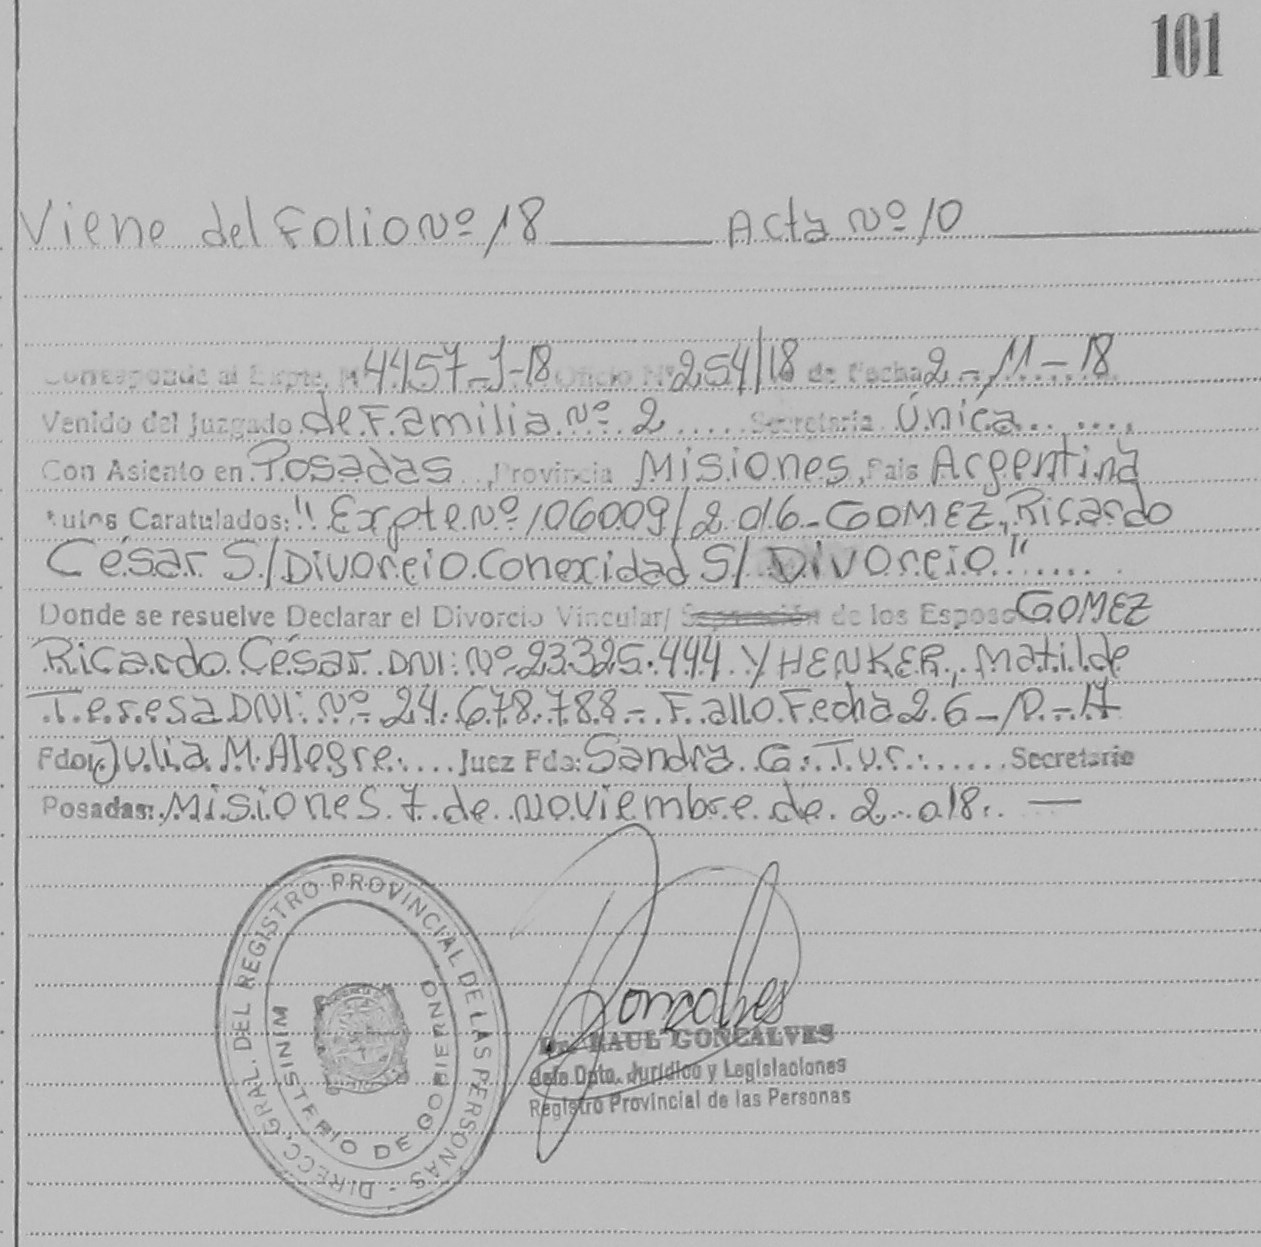 101
Viene del Folio Nº 18 Acta Nº 10
Corresponde al Expte. Nº 4457-J-18 Oficio Nº 254/18 de Fecha 2-11-18
Venido del Juzgado de Familia Nº 2 Secretaria Única
Con Asiento en Posadas, Provincia Misiones, Pais Argentina
Autos Caratulados: "Expte Nº 106009/2016-GOMEZ, Ricardo
César S/Divorcio Conexidad S/Divorcio"
Donde se resuelve Declarar el Divorcio Vincular/ Separación de los Esposo GOMEZ
Ricardo César DNI: Nº 23325.444 Y HENKER, Matilde
Teresa DNI: Nº 24.678.788-Fallo Fecha 26-10-17
Fdo: Julia M. Alegre Juez Fda: Sandra G. Tur. Secretario
Posadas: Misiones 7 de Noviembre de 2018. —
DIRECC. GRAL. DEL REGISTRO PROVINCIAL DE LAS PERSONAS -
MINISTERIO DE GOBIERNO
Goncalves
Dr. RAUL GONCALVES
Jefe Dpto. Jurídico y Legislaciones
Registro Provincial de las Personas